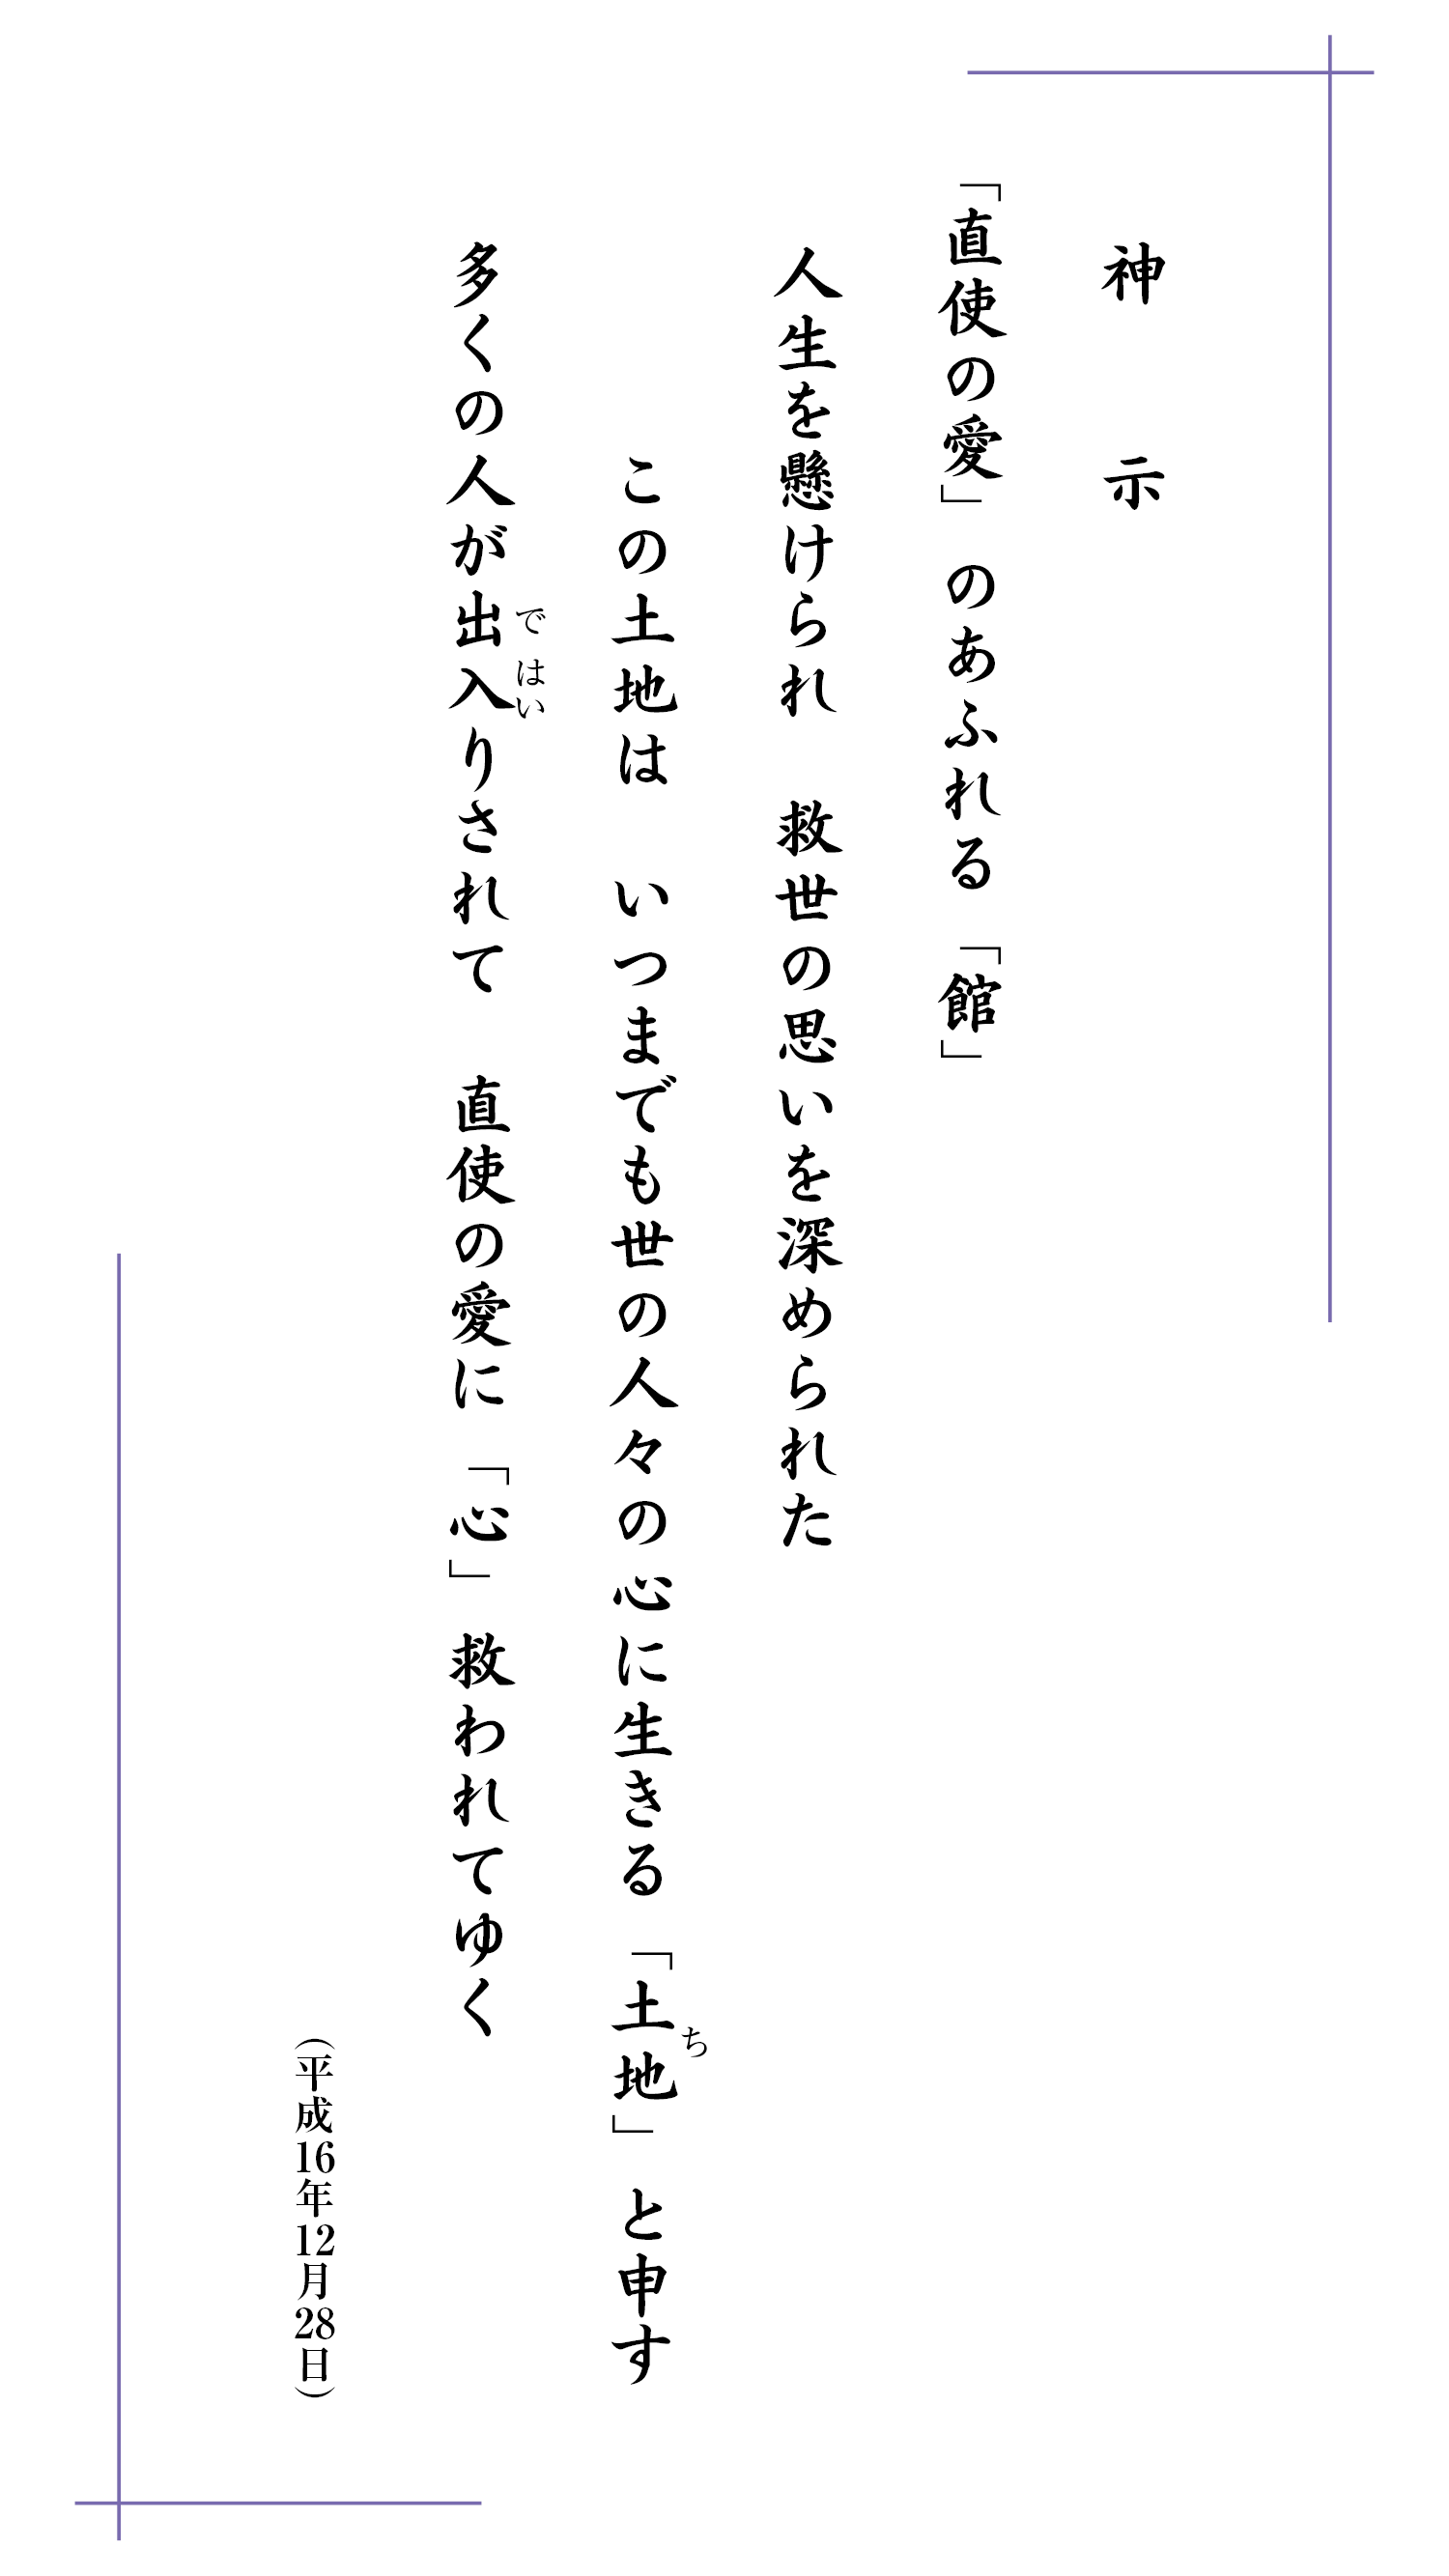 神 示
「直使の愛」のあふれる「館」
人生を懸けられ　救世の思いを深められた
この土地は　いつまでも世の人々の心に生きる「土地」と申す
ち
多くの人が出入りされて　直使の愛に「心」救われてゆく
で はい
（平成16年12月28日）